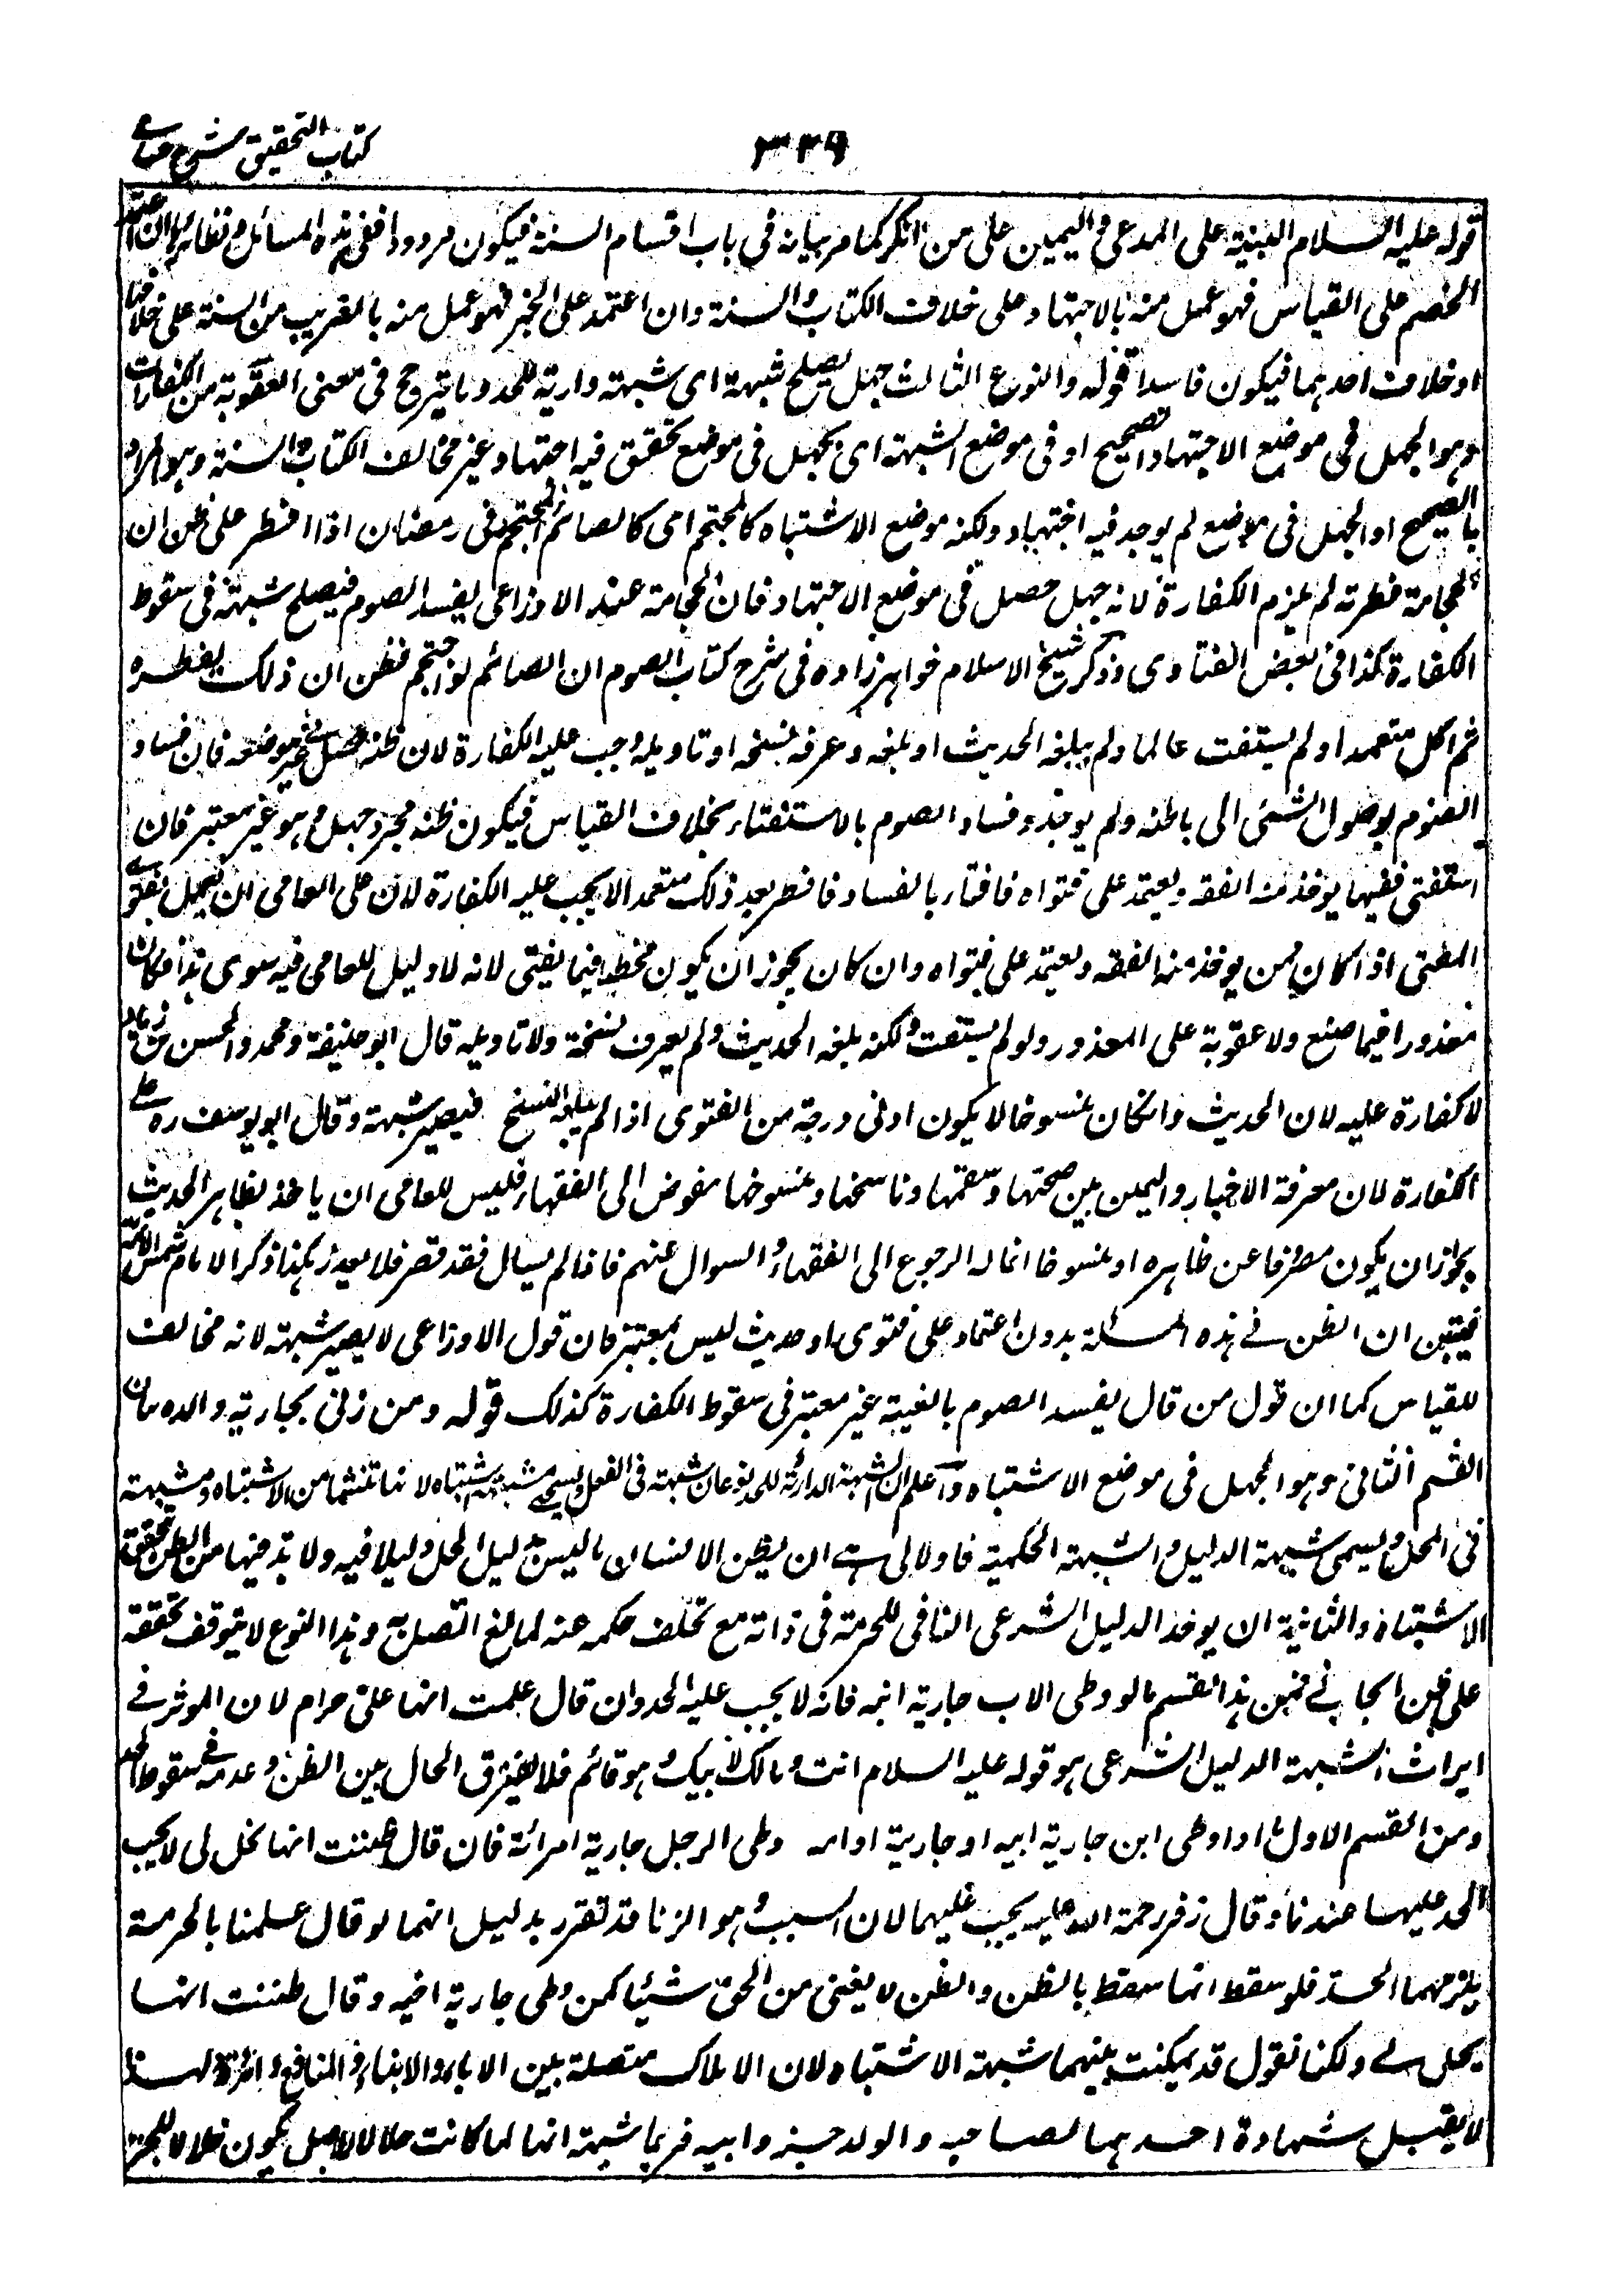 كتاب التحقيق شرح حسامى
٣٣٩
قوله عليه السلام البينة على المدعى واليمين على من انكر كما مر بيانه فى باب اقسام السنة فيكون مردودا ففى هذه المسائل ونظائرها ان اعتمد
الخصم على القياس فهو عمل منه بالاجتهاد على خلاف الكتاب والسنة وان اعتمد على الخبر فهو عمل منه بالغريب من السنة على خلافها
او خلاف احدهما فيكون فاسدا قوله والنوع الثالث جهل يصلح شبهة اى شبهة دارية للحدود ما تيروحج فى معنى العقوبة من الكفارات
وهو الجهل فى موضع الاجتهاد الصحيح او فى موضع الشبهة اى يجهل فى موضع تحقق فيه اجتهاد غير مخالف الكتاب والسنة وهو المراد
بالصحيح او الجهل فى موضع لم يوجد فيه اجتهاد ولكنه موضع الاشتباه كالمحتجم اى كالصائم المحتجم فى رمضان اذا افطر على ظن ان
الحجامة فطرته لم يلزم الكفارة لانه جهل حصل فى موضع الاجتهاد فان الحجامة عند الاوزاعى يفسد الصوم فيصلح شبهة فى سقوط
الكفارة كذا فى بعض الفتاوى وذكر شيخ الاسلام خواهرزاده فى شرح كتاب الصوم ان الصائم لو احتجم فظن ان ذلك يفطره
ثم اكل متعمدا ولم يستفت عالما ولم يبلغه الحديث او بلغه وعرف نسخه او تاويله وجب عليه الكفارة لان ظنه حصل فى غير موضعه فان فساد
الصوم بوصول الشئ الى باطنه ولم يوجد وفساد الصوم بالاستقاء بخلاف القياس فيكون ظنه مجرد جهل وهو غير معتبر فان
استفتى فقيها يوخذ منه الفقه ويعتمد على فتواه فافتاه بالفساد فافطر بعد ذلك متعمدا لا يجب عليه الكفارة لان على العامى ان يعمل بفتوى
المفتى اذا كان ممن يوخذ منه الفقه ويعتمد على فتواه وان كان يجوز ان يكون مخطئا فيما يفتى لانه لا دليل للعامى فيه سوى هذا فكان
معذورا فيما صنع ولا عقوبة على المعذور ولو لم يستفت ولكنه بلغه الحديث ولم يعرف نسخة ولا تاويله قال ابو حنيفة ومحمد والحسن بن زياد
لا كفارة عليه لان الحديث وان كان منسوخا لا يكون ادنى درجة من الفتوى اذا لم يبلغه النسخ فيصير شبهة وقال ابو يوسف ره عليه
الكفارة لان معرفة الاخبار والتميز بين صحتها وسقمها وناسخها ومنسوخها مفوض الى الفقهاء فليس للعامى ان ياخذ بظاهر الحديث
لجواز ان يكون مصروفا عن ظاهره او منسوخا انما له الرجوع الى الفقهاء والسوال عنهم فاذا لم يسال فقد قصر فلا يعذر هكذا ذكر الامام شمس الائمة
فتبين ان الظن فى هذه المسئلة بدون اعتماد على فتوى او حديث ليس بمعتبر فان قول الاوزاعى لا يصير شبهة لانه مخالف
للقياس كما ان قول من قال يفسد الصوم بالغيبة غير معتبر فى سقوط الكفارة كذلك قوله ومن زنى بجارية والده بيان
القسم الثانى وهو الجهل فى موضع الاشتباه واعلم ان الشبهة الدارئة للحد نوعان شبهة فى الفعل يسمى شبهة اشتباه لانها تنشا من الاشتباه وشبهة
فى المحل ويسمى شبهة الدليل والشبهة الحكمية فالاولى هى ان يظن الانسان ما ليس بدليل الحل دليلا فيه ولا بد فيها من الظن ليتحقق
الاشتباه والثانية ان يوخذ الدليل الشرعى النافى للحرمة فى ذاته مع تخلف حكمه عنه لمانع اتصل به وهذا النوع لا يتوقف تحققه
على ظن الجانى فمن هذا القسم ما لو وطى الاب جارية ابنه فانه لا يجب عليه الحد وان قال علمت انها على حرام لان الموثر فى
ايراث الشبهة الدليل الشرعى هو قوله عليه السلام انت ومالك لابيك وهو قائم فلا يفترق الحال بين الظن وعدمه فى سقوط الحد
ومن القسم الاول ما اذا وطى ابن جارية ابيه او جارية امه وطى الرجل جارية امرائة فان قال ظننت انها تحل لى لا يجب
الحد عليهما عندنا وقال زفر رحمة الله عليه يجب عليهما لان السبب وهو الزنا قد تقرر بدليل انهما لو قالا علمنا بالحرمة
يلزمهما الحد فلو سقط انما سقط بالظن والظن لا يغنى من الحق شيئا كمن وطى جارية اخيه وقال ظننت انها
يحل لى ولكنا نقول قد تمكنت بينهما شبهة الاشتباه لان الاملاك متصلة بين الاباء والابناء والمنافع دائرة لهذا
لا يقبل شهادة احدهما لصاحبه والولد جزء ابيه فربما شبهة انها لما كانت حلالا للاصل يكون حلالا للجزء